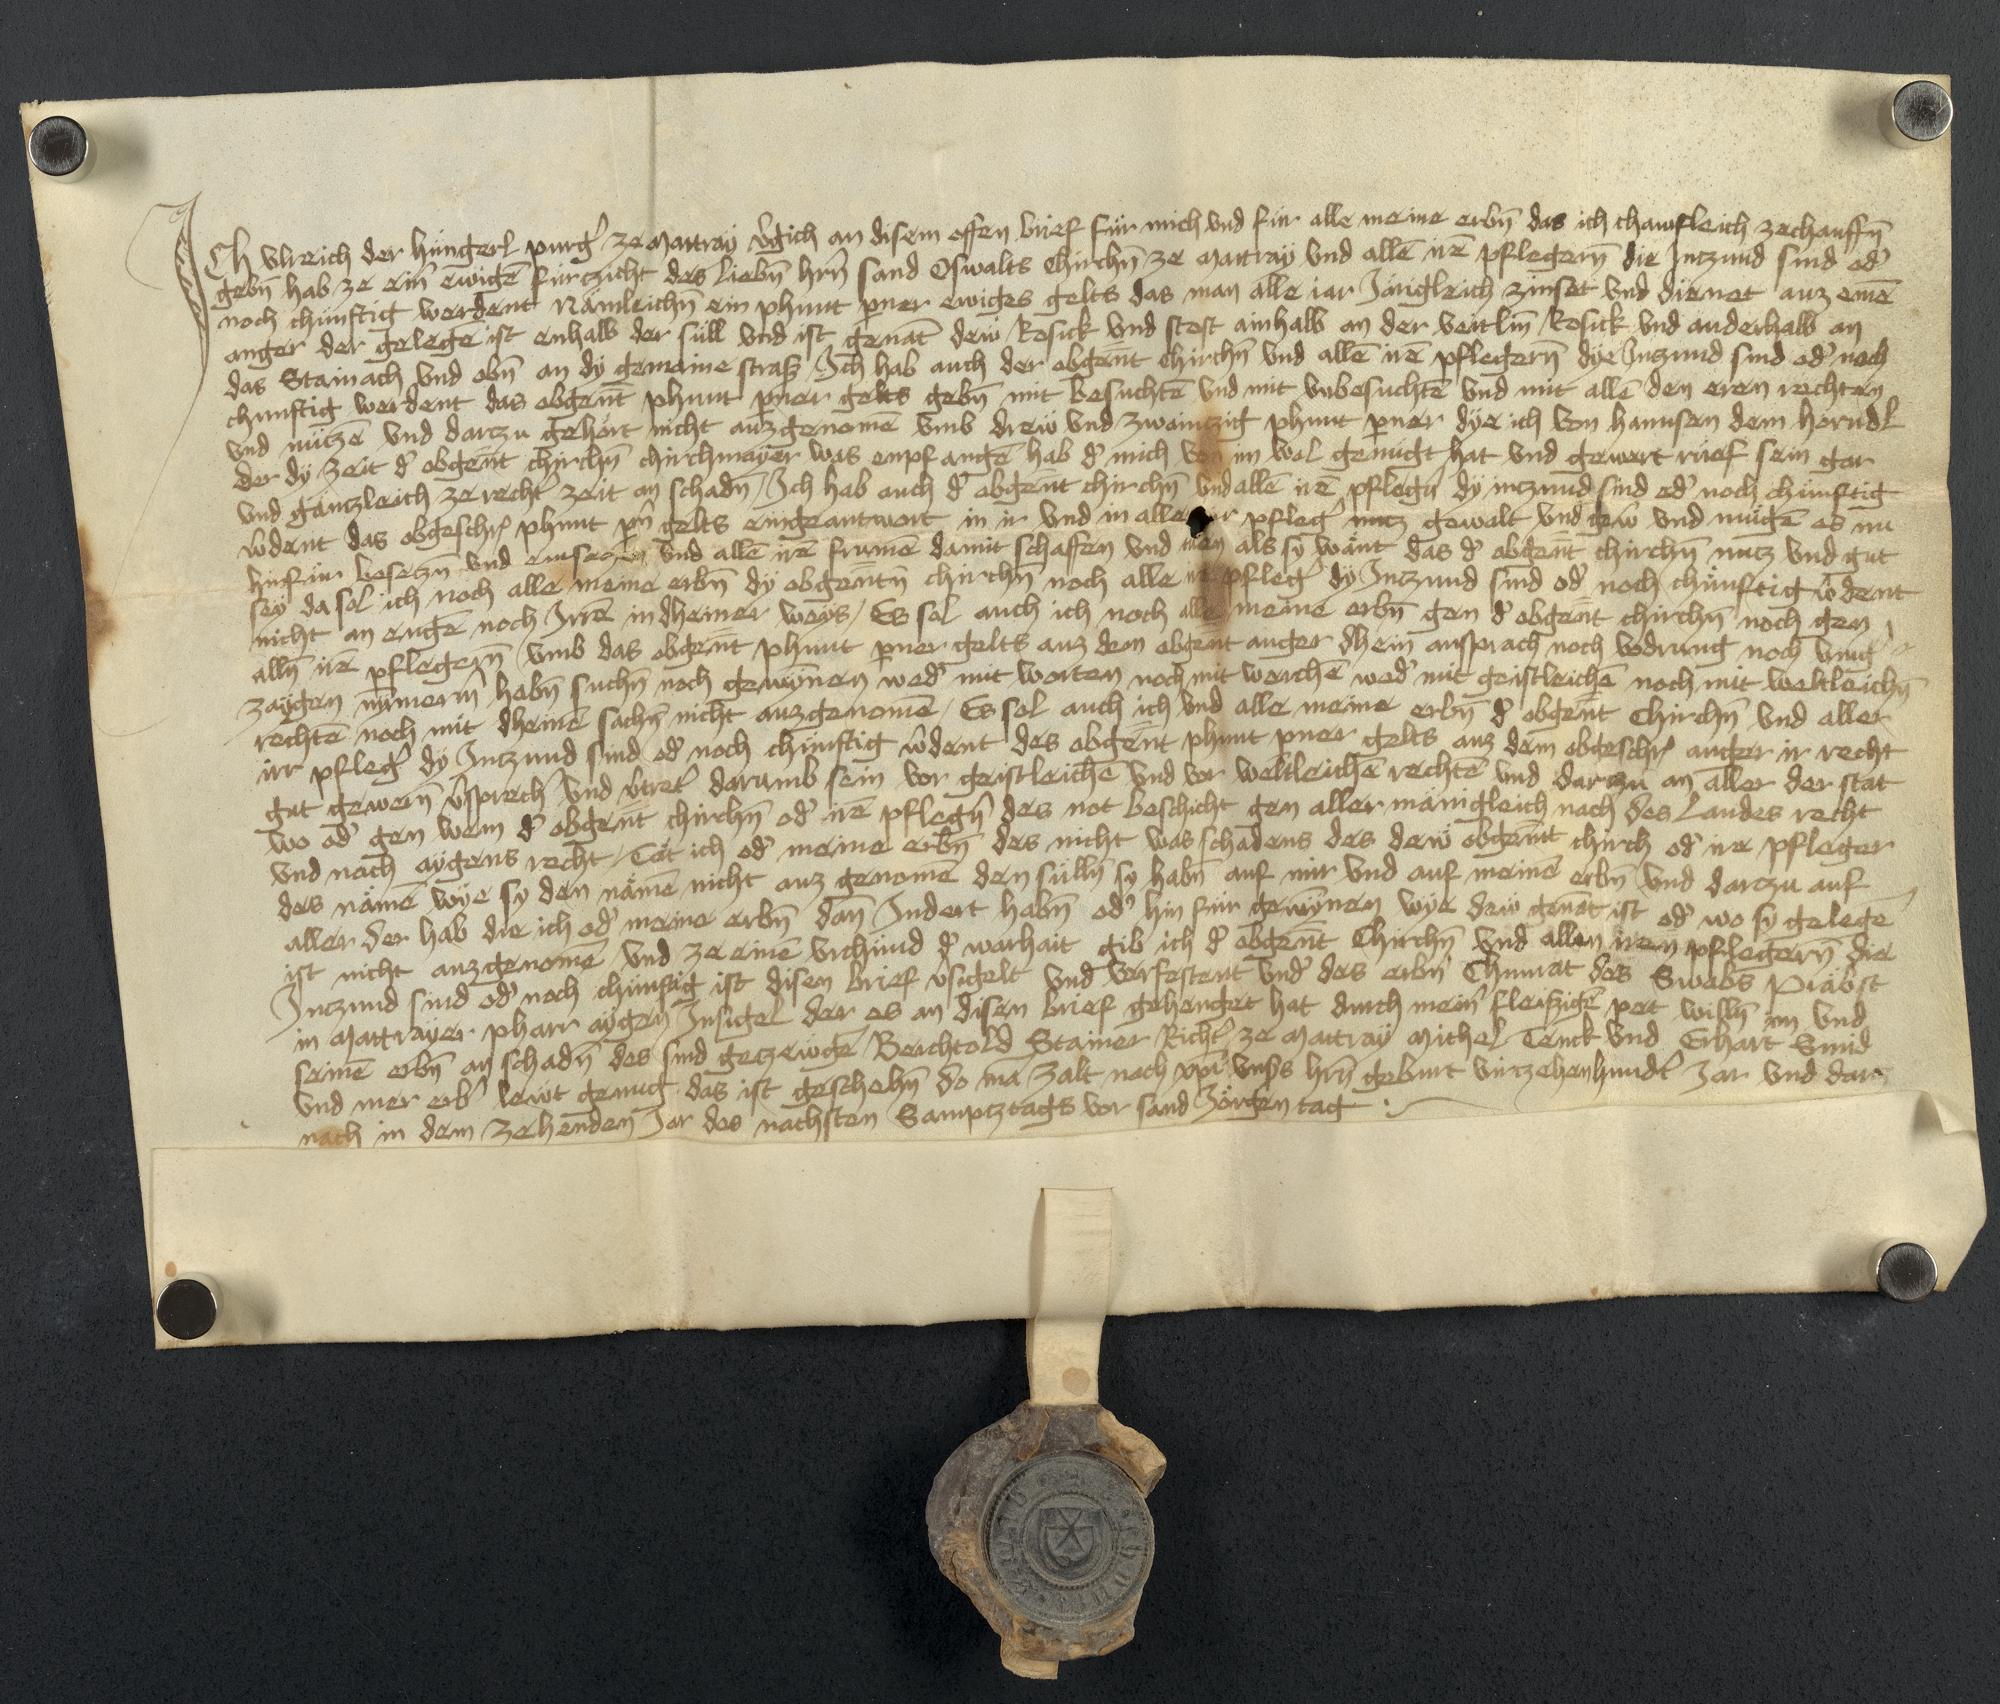 Ich vlreich der hüngerl purg̕ ze Mattraÿ v̕gich an disem offen brief für mich vnd für alle meine erbn̄ das ich chaufleich ze chauffn̄
gebn̄ hab ze eim̄ ewigē fürczicht des liebn̄ hrn̄ sand Oswalts chirchn̄ ze Mattraÿ vnd allē irē pflegern̄ die Jntzund sind od̕
noch chünftig werdent Nämleichn̄ ein phunt pner ewiges gelts das man alle iar Järigleich zinset vnd dienet auz einē
anger der gelegē ist enhalb der süll vnd ist genāt dew Rosick vnd stost ainhalb an der veitlin̄ Rosick vnd anderhalb an
das Stainach vnd obn̄ an dÿ gemaine strasz Jch hab auch der obgen̄t chirchn̄ vnd allē irē pflegern̄ dÿe Jntzund sind od̕ noch
chunftig werdent das obgen̄t phunt pner gelts gebn̄ mit besuchtē vnd mit vnbesuchtē vnd mit allē den eren rechten
vnd nützē vnd darczu gehört nicht auzgenomē vmb drew vnd zwainczig phunt pner dÿe ich von hannsen dem hörndl
der dÿ zeit d̕ obgen̄t chirchn̄ chirchmaÿer was enpfangē hab d̕ mich von im wol genügt hat vnd gewert rüef sein gar
vnd gänczleich ze recht̕ zeit an schadn̄ Jch hab auch d̕ obgen̄t chirchn̄ vnd allē irē pfleg̕n dÿ intzund sind od̕ noch chünftig
w̕dent das obgeschr̕ phunt pn̄ gelts eingeantwort in ir vnd in aller ir pfleg̕ nutz gewalt vnd gew̕ vnd mügē es nu
hinfür besetzn̄ vnd entsezn̄ vnd allē irē frumē damit schaffen vnd tuen als sÿ wänt das d̕ obgen̄t chirchn̄ nutz vnd gut
seÿ da sol ich noch alle meine erbn̄ dÿ obgen̄tn̄ chirchn̄ noch alle ir pfleg̕ dÿ Jntzund sind od̕ noch chünftig w̕dent
nicht an engē noch Jrrē in dheiner weÿs Es sol auch ich noch alle meine erbn̄ gen d̕ obgen̄t chirchn̄ noch gen
alln̄ irē pflegern̄ vmb das obgen̄t phunt pner gelts auz dem obgen̄t anger dhein ansprach noch vodrung noch
zaÿgen nÿmerm̄ habn̄ suchn̄ noch gewÿnen wed̕ mit worten noch mit werchē wed̕ mit geistleichē noch mit weltleichn̄
rechtē noch mit dheinē sachn̄ nicht auzgenomē Es sol auch ich vnd alle meine erbn̄ d̕ obgen̄t Chirchn̄ vnd aller
irr pfleg̕ dÿ Jntzund sind od̕ noch chünftig w̕dent des obgen̄t phunt pner gelts auz dem obgeschr̕ anger ir recht
gut gewern̄ v̕sprech̕ vnd v̕tret̕ darumb sein vor geistleichē vnd vor weltleichē rechtē vnd darczu an aller der stat
wo od̕ gen wem d̕ obgen̄t chirchn̄ od̕ irē pfleg̕n des not beschicht gen aller männigleich nach des Landes recht
vnd nach aÿgens recht Tät ich od̕ meine erbn̄ des nicht was schadens des dew obgen̄t chirch od̕ ire pfleger
des nämē wÿe sÿ den nämē nicht auz genomē den sülln̄ sÿ habn̄ auf mir vnd auf meinē erbn̄ vnd darczu auf
aller der hab die ich od̕ meine erbn̄ dan̄ Jndert habn̄ od̕ hin für gewÿnen wÿe dew genāt ist od̕ wo sÿ gelegē
ist nicht auzgenomē vnd ze einē vrchünd d̕ warhait gib ich d̕ obgen̄t Chirchn̄ vnd allen iren pflegern̄ die
Jntzund sind od̕ noch chünftig ist disen brief v̕sigelt vnd verfestent vnd̕ des erbn̄ Chunrat des Swebs Präbst
in Mattraÿer pharr aÿgen Jnsigel der es an disen brief gehenget hat durch mein̄ fleiszigē pet willn̄ im vnd
seinē erbn̄ an schadn̄ des sind geczewgē Berchtold Stainer Richt̕ ze Mattraÿ Michel Tenck vnd Erhart Smid
vnd mer erb̕ lewt genug das ist geschehn̄ do ma zalt nach xpī vnsers hrn̄ geburt virzehenhund̕t Jar vnd dar
nach in dem zehenden Jar des nachsten Sampcztags vor sand Jörgen tag